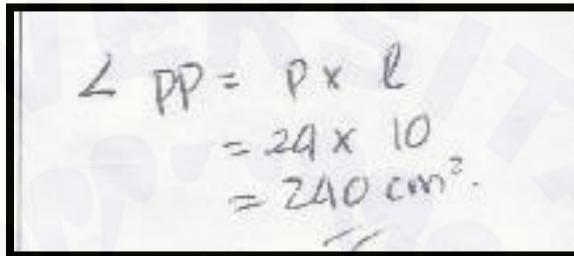 L PP = P x l
= 24 x 10
= 240 cm².